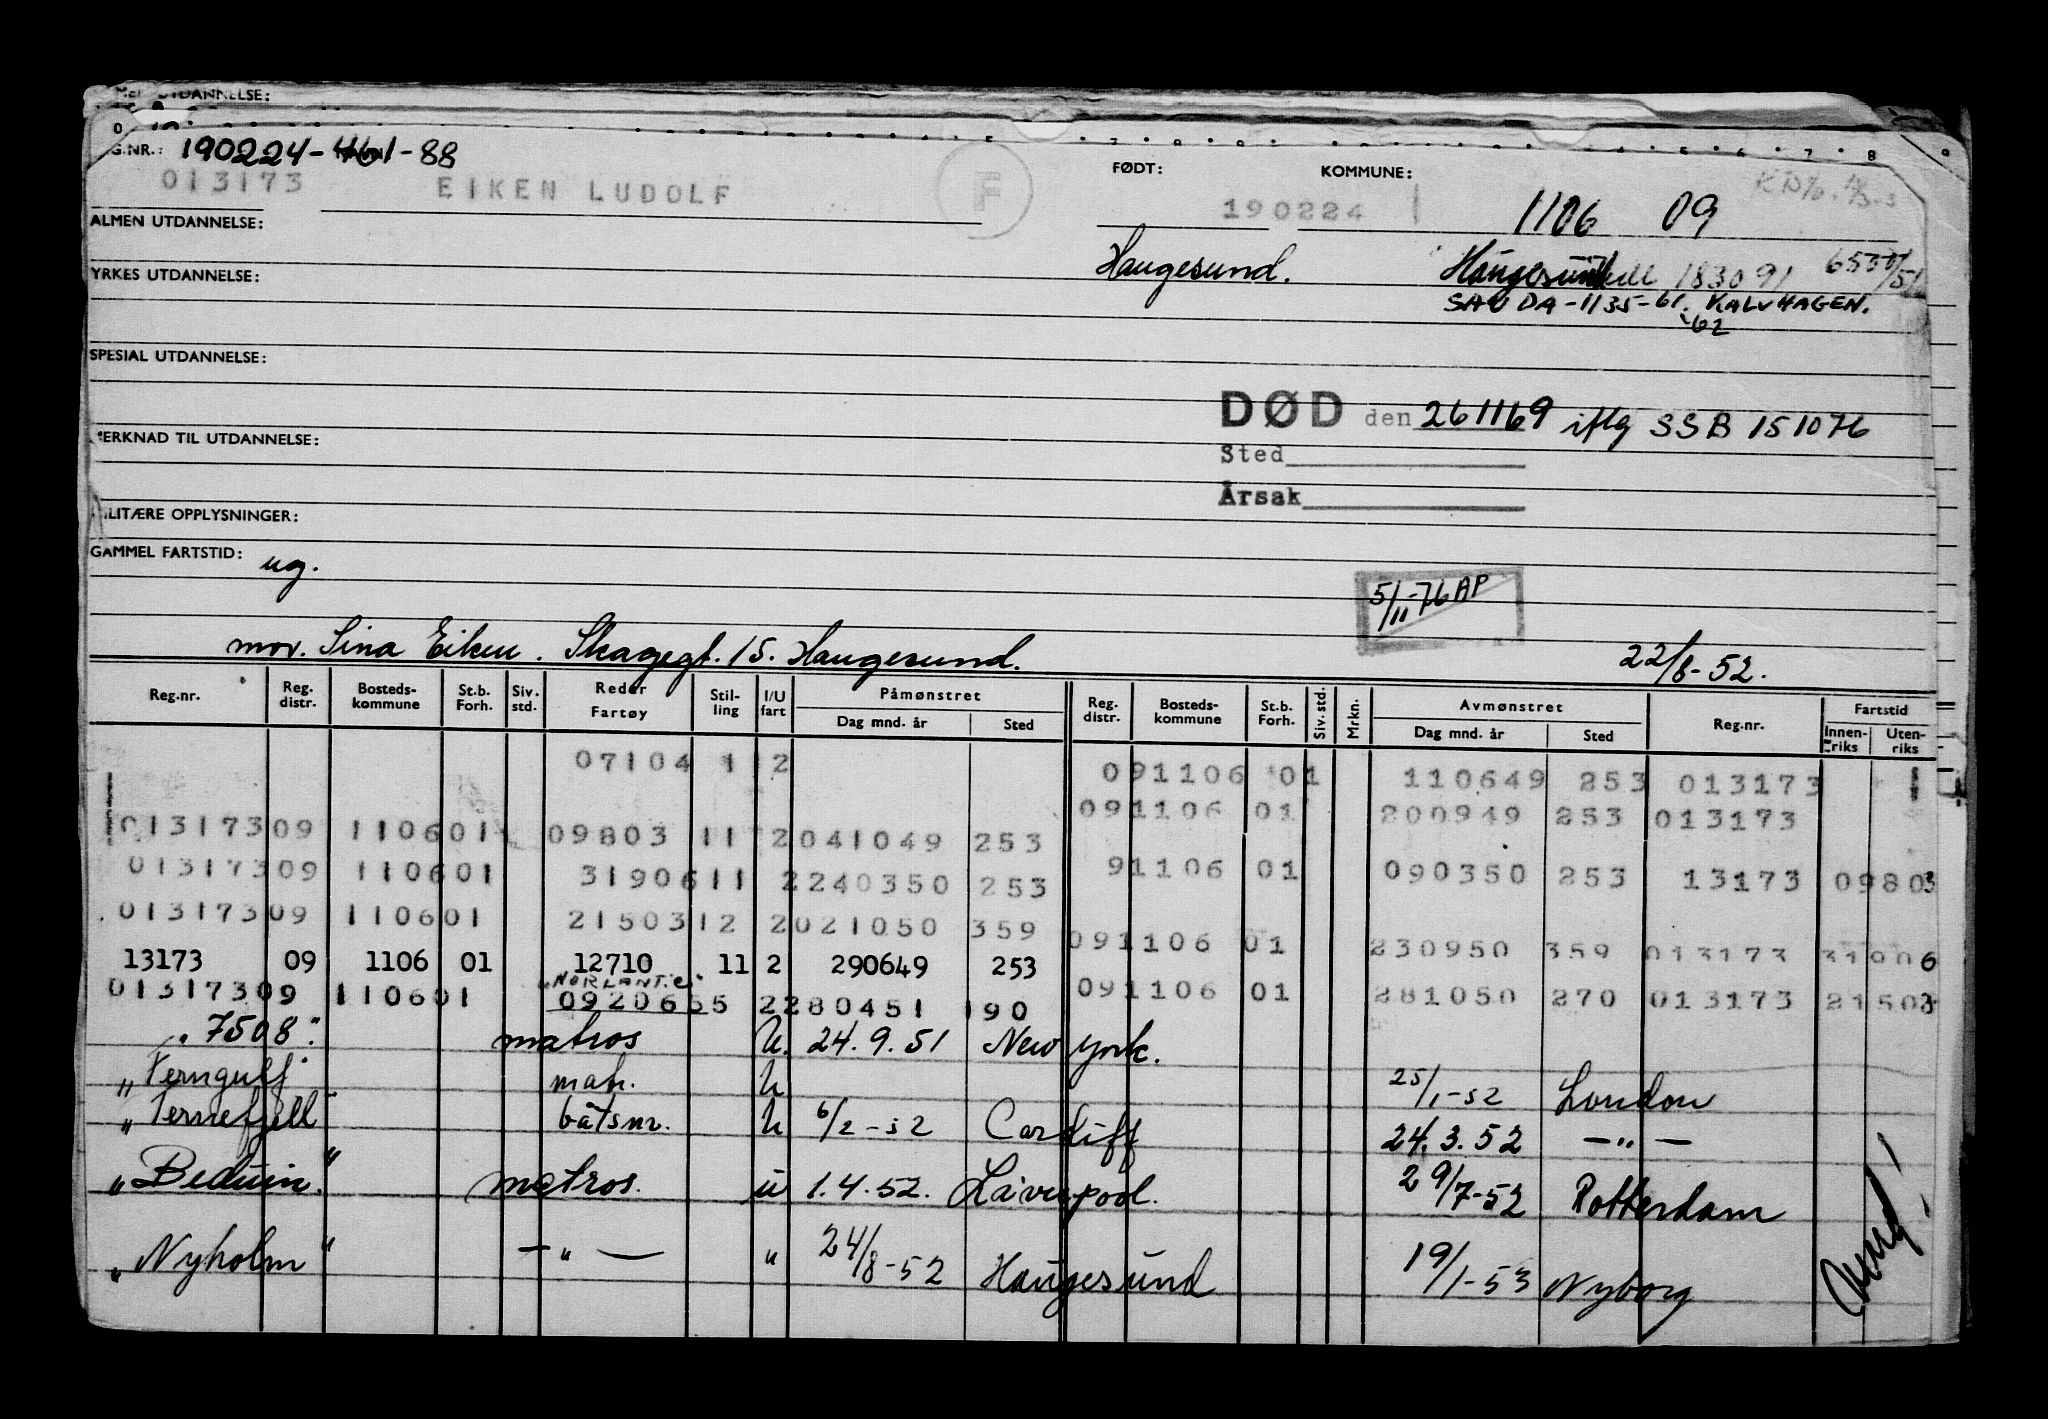 MEN UTDANNELSE:
G.NR.: 190224-461-88
013173 EIKEN LUDOLF F
FØDT: KOMMUNE:
190224 1106 09
ALMEN UTDANNELSE:
Haugesund. Haugesund 183091
SAUDA-1135-61. KALVHAGEN.
62
YRKES UTDANNELSE:
SPESIAL UTDANNELSE:
DØD den 261169 iflg SSB 151076
MERKNAD TIL UTDANNELSE:
Sted
Årsak
MILITÆRE OPPLYSNINGER:
GAMMEL FARTSTID: ug.
5/11-76 AP
mor. Sina Eiken. Skagegt. 15. Haugesund. 22/8-52.
Reg.nr. Reg. distr. Bosteds-kommune St.b. Forh. Siv. std. Reder Fartøy Stil-ling I/U fart Påmønstret Dag mnd. år Sted Reg. distr. Bosteds-kommune St.b. Forh. Siv. std. Mrkn. Avmønstret Dag mnd. år Sted Reg.nr. Fartstid Innen-riks Uten-riks
07104 1 2 091106 01 110649 253 013173
091106 01 200949 253 013173
013173 09 1106 01 09803 11 2 041049 253
91106 01 090350 253 13173 09803
013173 09 1106 01 31906 11 2 240350 253
013173 09 1106 01 21503 12 2 021050 359
091106 01 230950 359 013173 31906
13173 09 1106 01 12710 11 2 290649 253
"NORLANTIC"
013173 09 1106 01 09206 55 2 280451 190
091106 01 281050 270 013173 21503
"7508" matros U. 24.9.51 New York.
"Ferngulf" matr. U 25/1-52 London
"Ternefjell" båtsm. U 6/2-52 Cardiff 24.3.52 —"—
"Beduin." matros. u 1.4.52. Liverpool. 29/7-52 Rotterdam
"Nyholm" —"— " 24/8-52 Haugesund 19/1-53 Nyborg